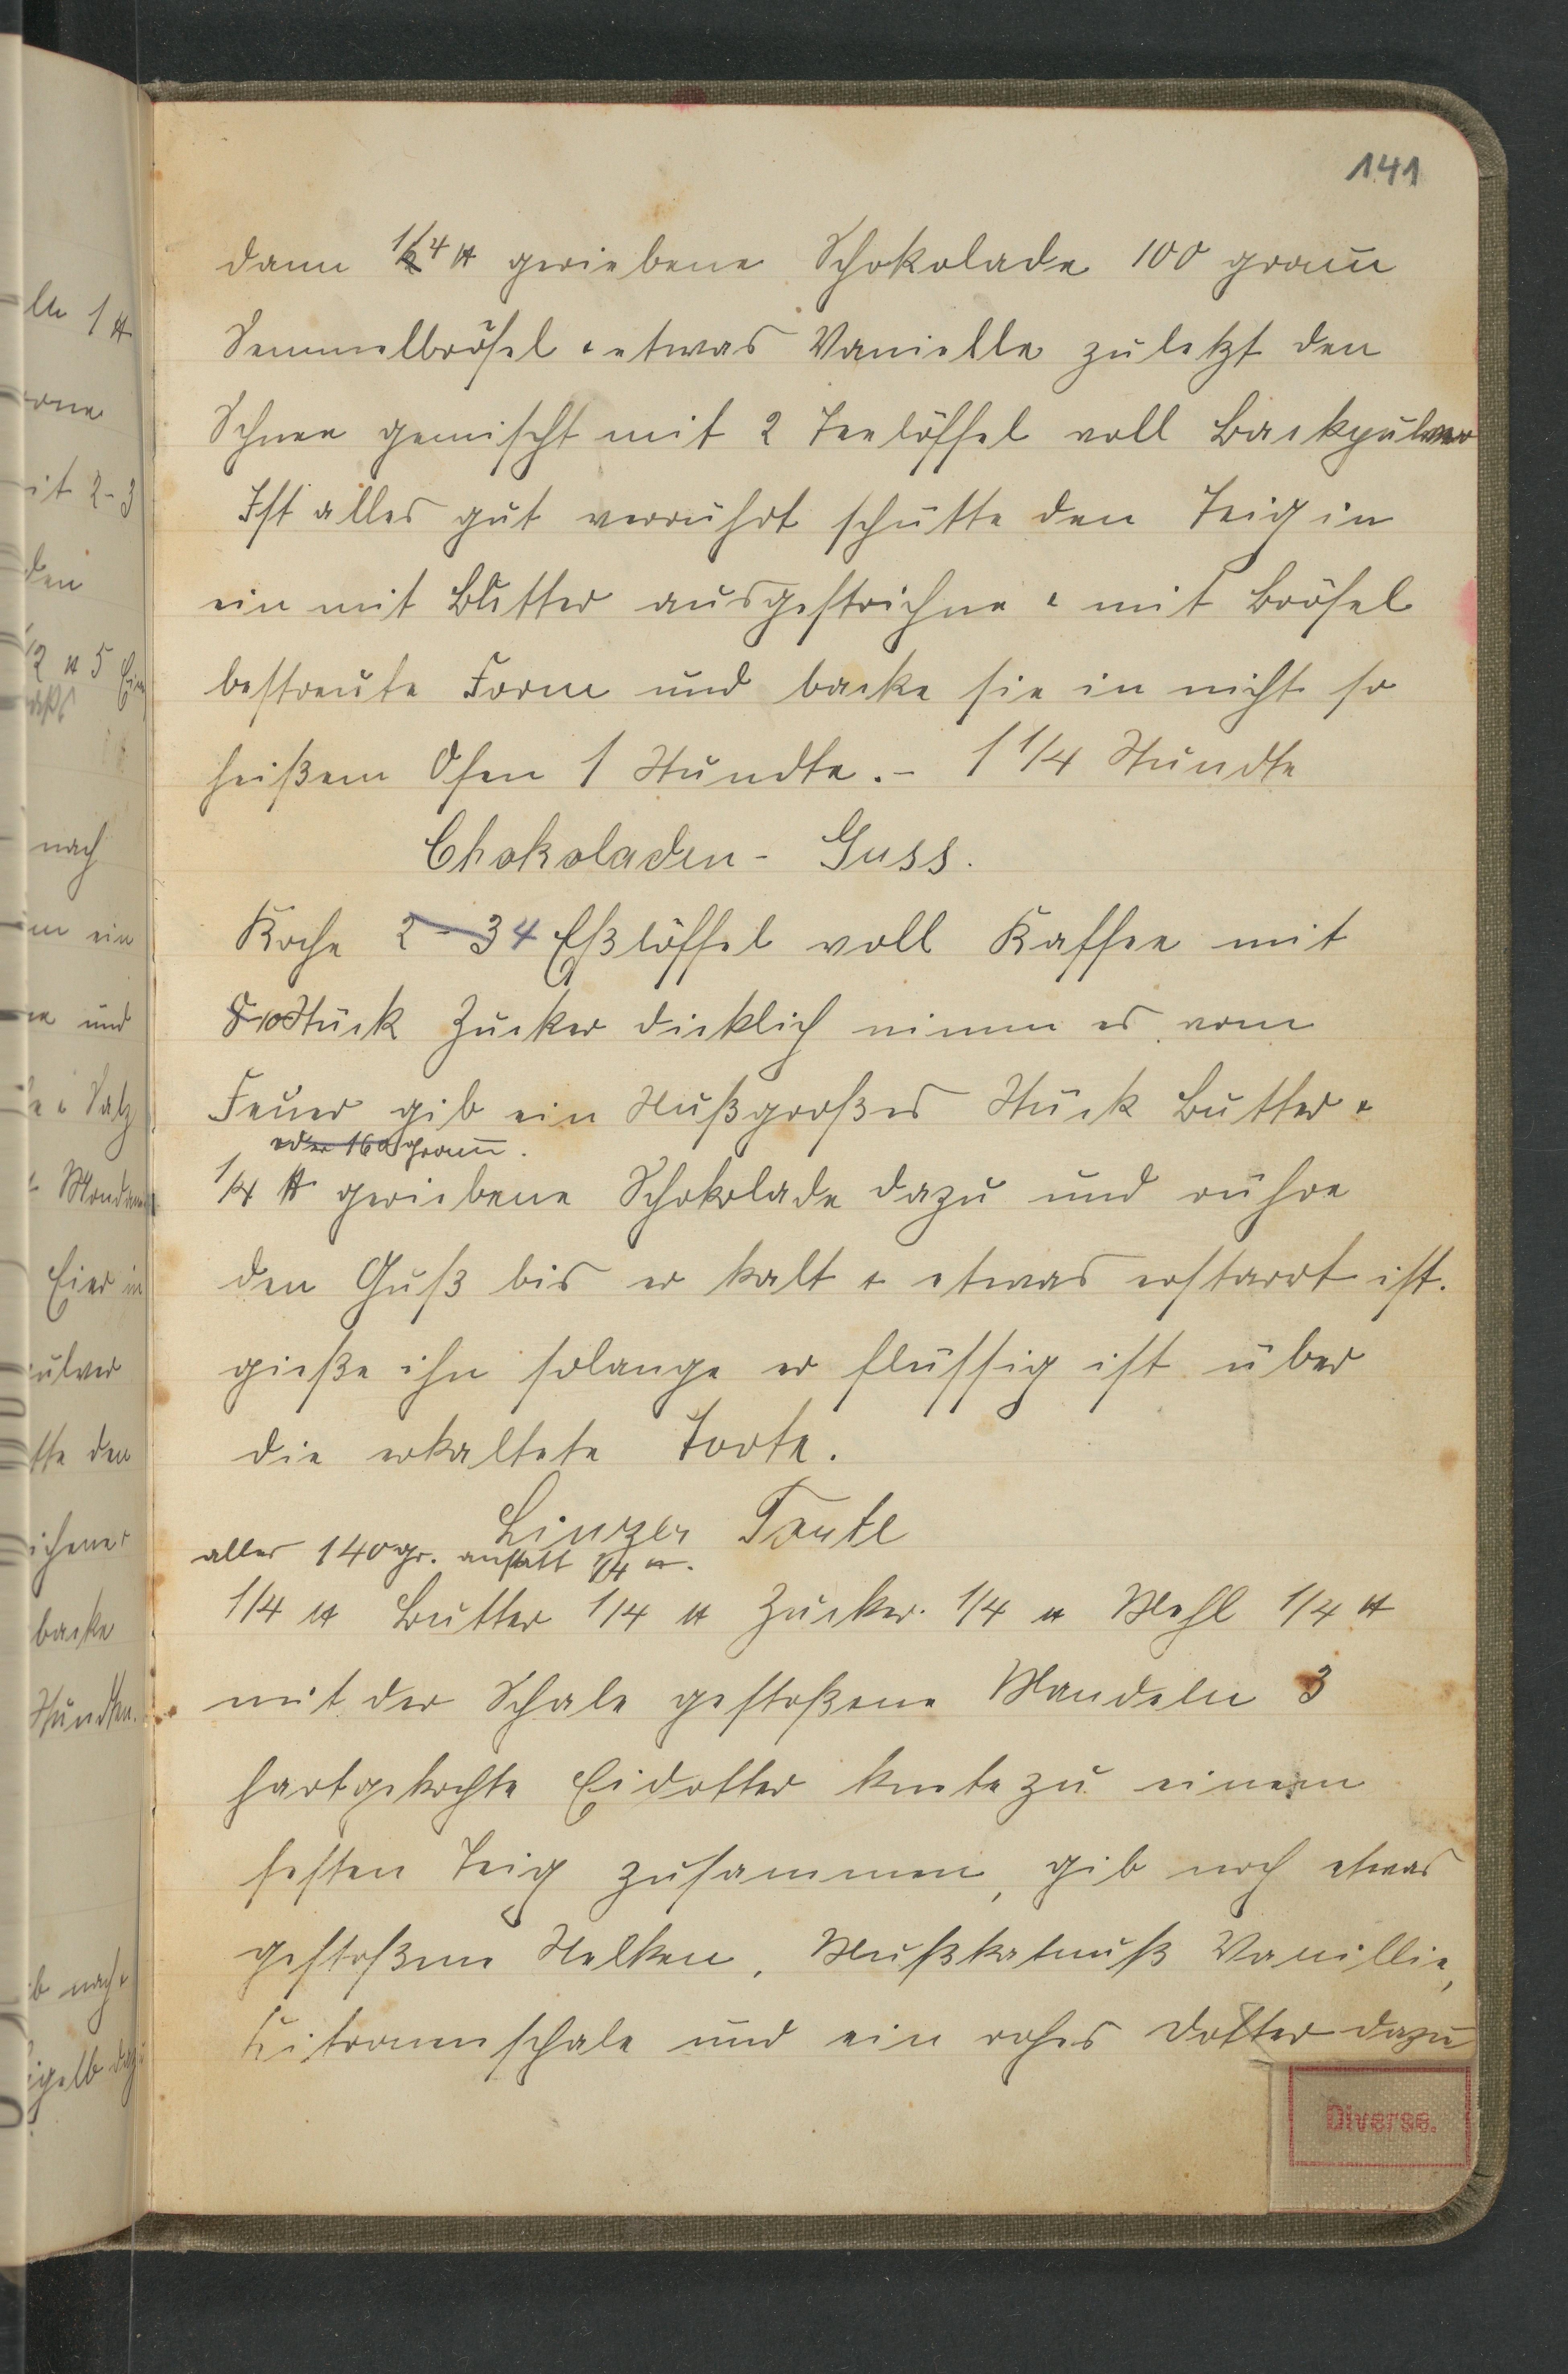 141
dann 1/4 ℔ geriebene Schokolade 100 gram̅
Semmelbrösel & etwas Vanielle zuletzt den
Schnee gemischt mit 2 Teelöffel voll Backpulver
Ist alles gut verrührt schütte den Teig in
ein mit Butter ausgestrichne & mit Brösel
bestreute Form und backe sie in nicht so
heißem Ofen 1 Stundte. - 1 1/4 Stundte
Chokoladen - Guss.
Koche 2 - 3 4 Eßlöffel voll Kaffee mit
8 10 Stück Zucker dicklich nimm es vom
Feuer gib ein Nußgroßes Stück Butter &
oder 160 gram̅.
1/4 ℔ geriebene Schokolade dazu und rühre
den Guß bis er kalt & etwas erstarrt ist.
gieße ihn solange er flüssig ist über
die erkaltete Torte.
Linzer Torte
alles 140 gr. anstatt 1/4 ℔.
1/4 ℔ Butter 1/4 ℔ Zucker. 1/4 ℔ Mehl 1/4 ℔
mit der Schale gestoßene Mandeln 3
hartgekochte Eidotter knete zu einem
festen Teig zusammen, gib noch etwas
gestoßene Nelken, Mußkatnuß Vanillie,
Zitronenschale und ein rohes Dotter dazu
Diverse.